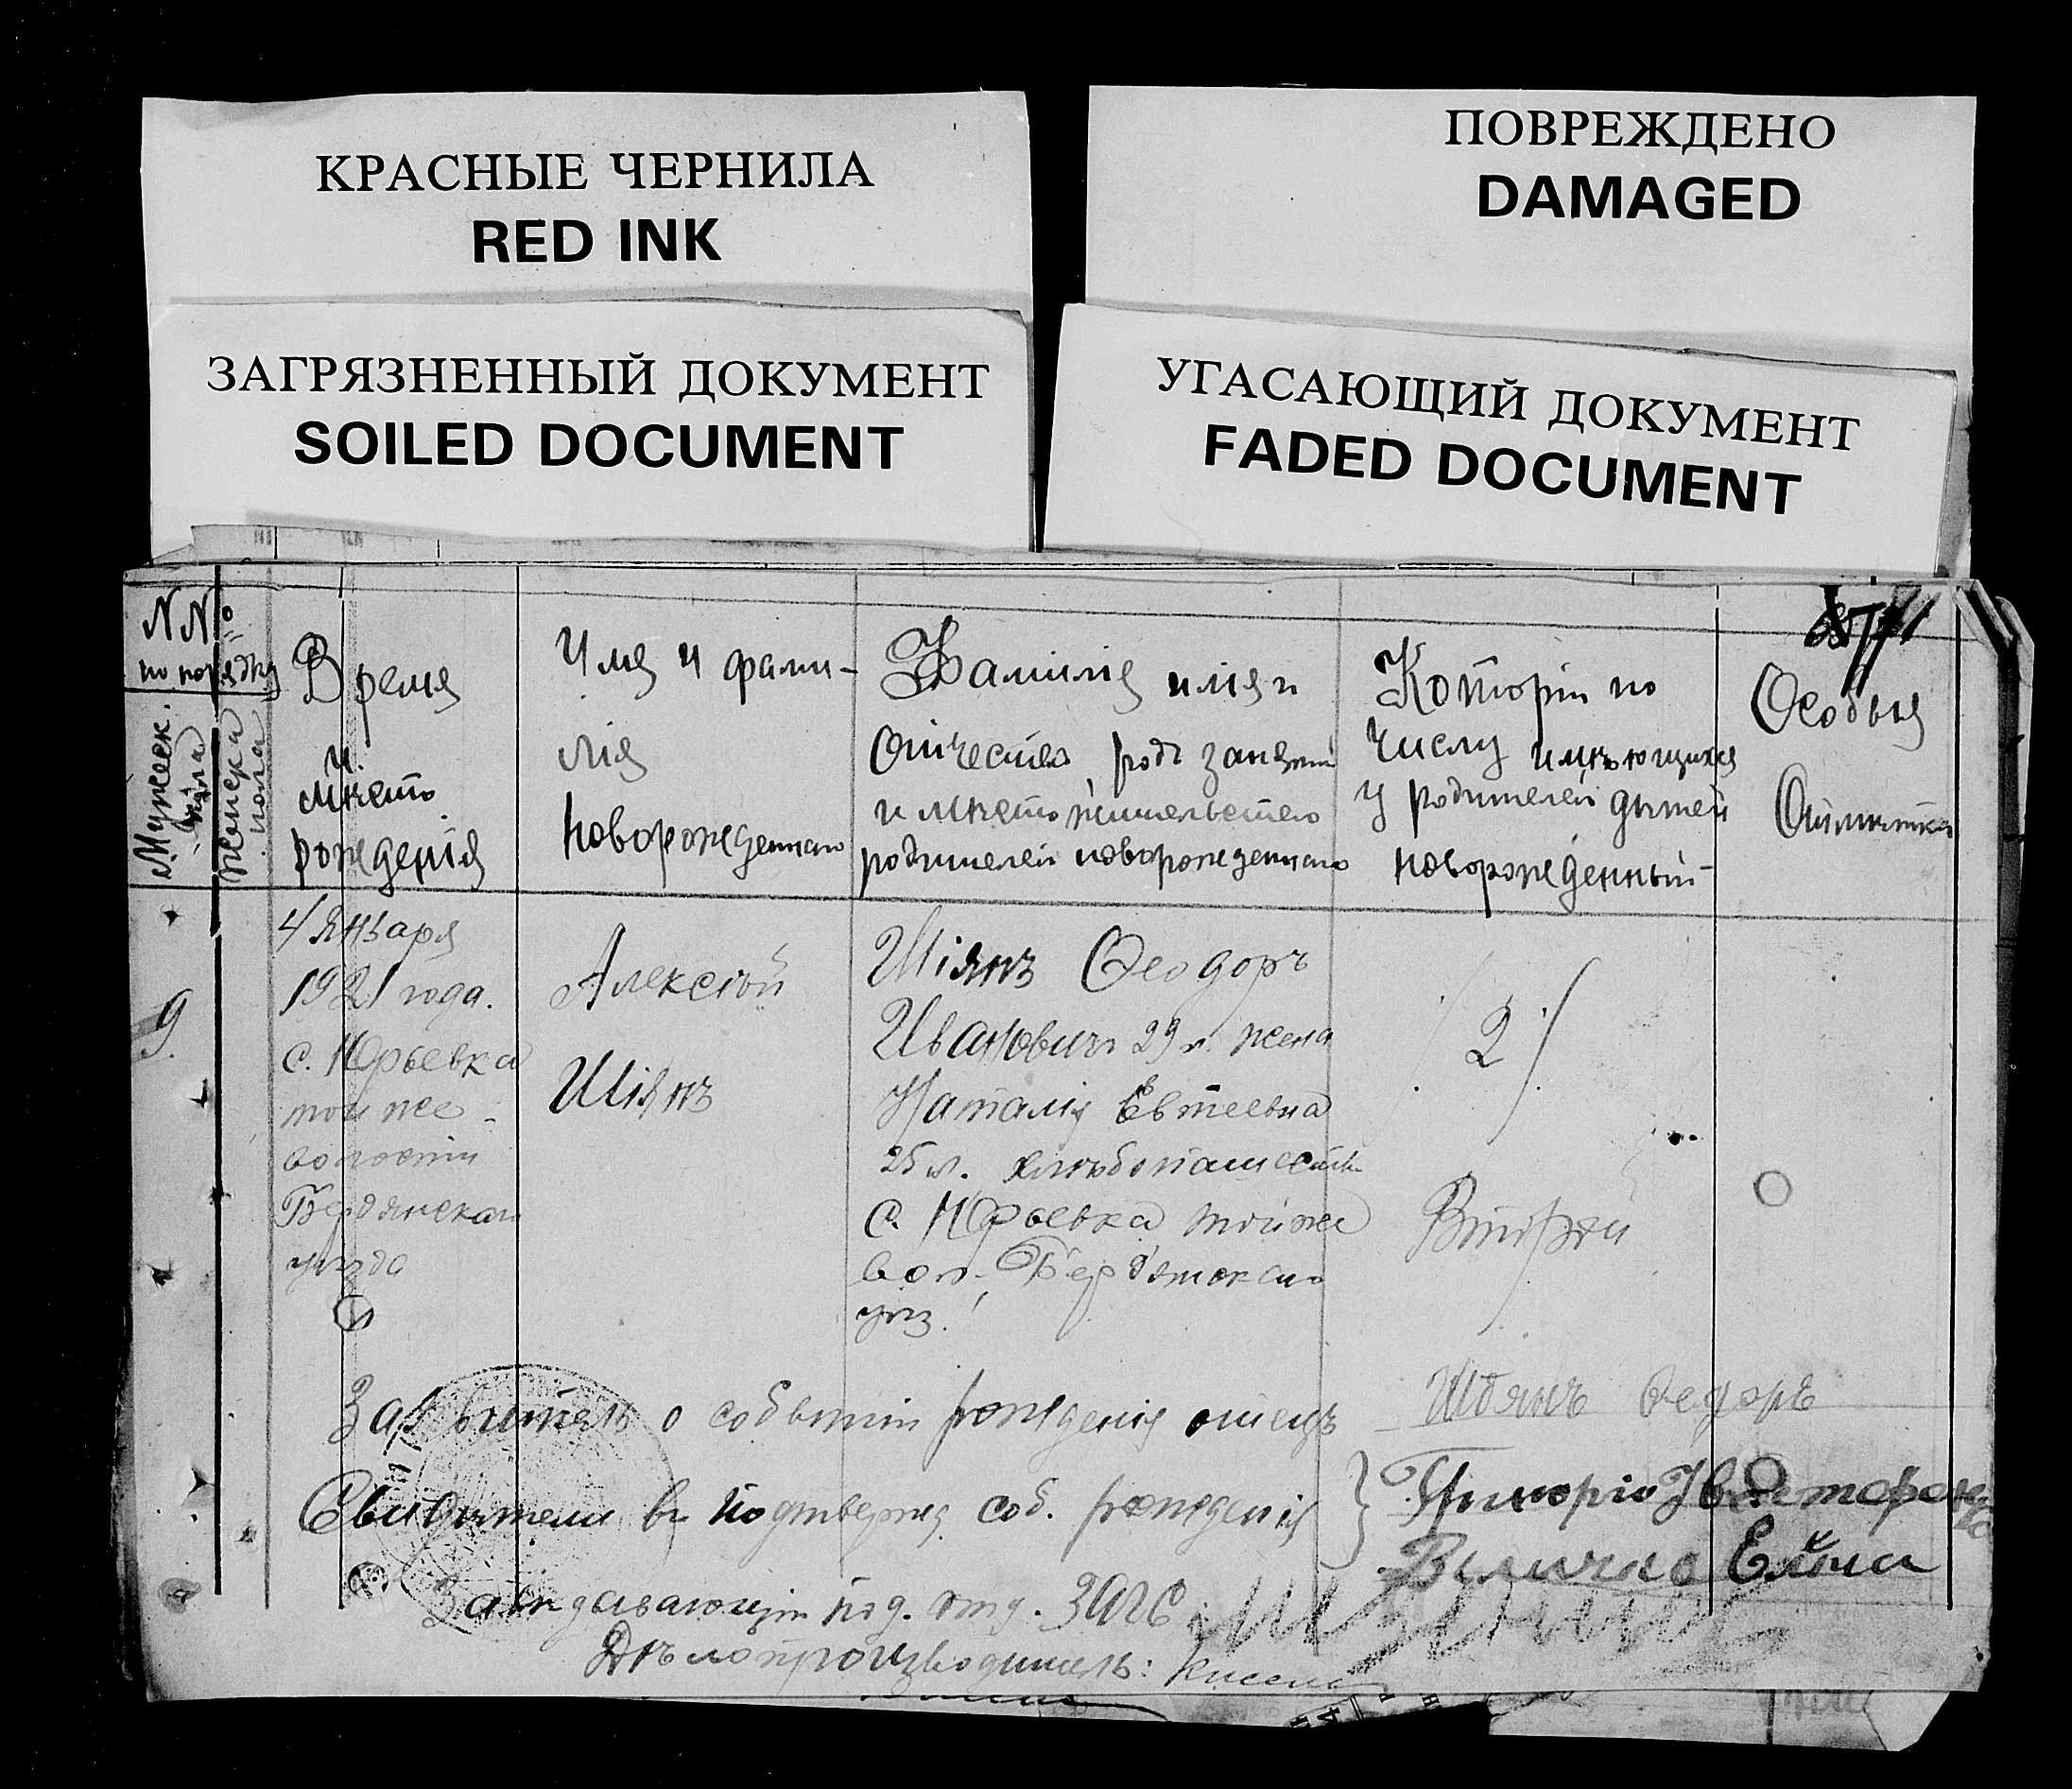 КРАСНЫЕ ЧЕРНИЛА
RED INK
ПОВРЕЖДЕНО
DAMAGED
ЗАГРЯЗНЕННЫЙ ДОКУМЕНТ
SOILED DOCUMENT
УГАСАЮЩИЙ ДОКУМЕНТ
FADED DOCUMENT
NN
по порядку
Мужеск. пола
Женска пола
Время
и
мѣсто
рожденія
Имя и фами-
лія
новорожденнаго
Фамилія имя и
отчество, родъ занятій
и мѣсто жительство
родителей новорожденнаго
Который по
числу имѣющихся
у родителей дѣтей
новорожденный
Особыя
Отмѣтки
9.
4 января
1921 года.
с. Юрьевка
той же
волости
Бердянскаго
уѣзда
Алексѣй
Шіянъ
Шіянъ Феодоръ
Ивановичъ 29 л. жена
Наталія Евтеевна
25 л. хлѣбопашество
с. Юрьевка той же
вол. Бердянскаго
уѣз.
2
Второй
Заявитель о событіи рожденія отецъ
Шіянъ Федоръ
Свидѣтели въ подтвержд. соб. рожденія
Величко
Завѣдывающій под. отд. ЗАГС:
Дѣлопроизводитель: